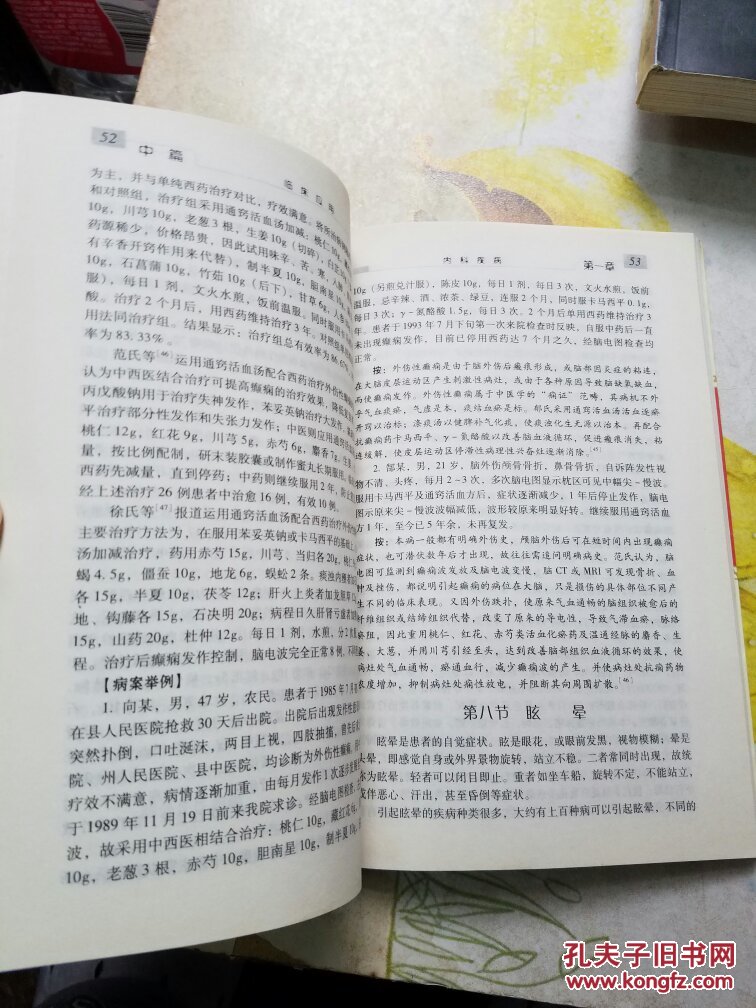 52
中篇
临床应用
为主，并与单纯西药治疗对比，疗效满意。将所治病例
和对照组，治疗组采用通窍活血汤加减：桃仁10g，
10g，川芎10g，老葱3根，生姜10g（切碎），白芷10g
药源稀少，价格昂贵，因此试用味辛、苦、寒，人肺、
有辛香开窍作用来代替），制半夏10g，胆南星10g
10g，石菖蒲10g，竹茹10g（后下），甘草6g，人参
服），每日1剂，文火水煎，饭前温服。同时服用卡马
酸。治疗2个月后，用西药维持治疗3年。对照组单
用法同治疗组。结果显示：治疗组总有效率为86.67%
率为83.33%。
范氏等[46]运用通窍活血汤配合西药治疗外伤性癫痫
认为中西医结合治疗可提高癫痫的治疗效果，降低复
丙戊酸钠用于治疗失神发作，苯妥英钠治疗大发作，
平治疗部分性发作和失张力发作；中医则应用通窍活
桃仁12g，红花9g，川芎5g，赤芍6g，麝香7g，生
量，按比例配制，研末装胶囊或制作蜜丸长期服用。
西药先减量，直到停药；中药则继续服用2年，
经上述治疗26例患者中治愈16例，有效10例。
徐氏等[47]报道运用通窍活血汤配合西药治疗外伤
主要治疗方法为，在服用苯妥英钠或卡马西平的基础上
汤加减治疗，药用赤芍15g，川芎、当归各20g，桃仁
蝎4.5g，僵蚕10g，地龙6g，蜈蚣2条。痰浊内壅者加
各15g，半夏10g，茯苓12g；肝火上炎者加龙胆草
地、钩藤各15g，石决明20g；病程日久肝肾亏虚者加
15g，山药20g，杜仲12g。每日1剂，水煎，分2次
程。治疗后癫痫发作控制，脑电波完全正常8例，不
【病案举例】
1. 向某，男，47岁，农民。患者于1985年7月
在县人民医院抢救30天后出院。出院后出现发作性
突然扑倒，口吐涎沫，两目上视，四肢抽搐，曾先后
院、州人民医院、县中医院，均诊断为外伤性癫痫，
疗效不满意，病情逐渐加重，由每月发作1次逐步
于1989年11月19日前来我院求诊。经脑电图检查
波，故采用中西医相结合治疗：桃仁10g，藏红花
10g，老葱3根，赤芍10g，胆南星10g，制半夏10g
内科疾病
第一章
53
10g（另煎兑汁服），陈皮10g，每日1剂，每日3次，文火水煎，饭前
温服，忌辛辣、酒、浓茶、绿豆，连服2个月，同时服卡马西平0.1g，
每日3次；γ-氨酪酸1.5g，每日3次。2个月后单用西药维持治疗3
年。患者于1993年7月下旬第一次来院检查时反映，自服中药后一直
未出现癫痫发作，目前已停用西药达7个月之久，经脑电图检查均
正常。
按：外伤性癫痫是由于脑外伤后瘢痕形成，或脑部因炎症的粘连，
在大脑皮层运动区产生刺激性病灶，或由于各种原因导致脑缺氧缺血，
而使癫痫发作。外伤性癫痫属于中医学的“痫证”范畴，其病机不外
乎气血痰瘀，气虚是本，痰结血瘀是标。郁氏采用通窍活血汤活血逐瘀
开窍以治标；涤痰汤以健脾补气化痰，使痰浊化生无源以治本。再配合
抗癫痫药卡马西平、γ-氨酪酸以改善脑血液循环，促进瘢痕消失，粘
连缓解，使皮层运动区停滞性病理性兴奋灶逐渐消除。[45]
2. 郜某，男，21岁，脑外伤颅骨骨折，鼻骨骨折，自诉阵发性视
物不清，头疼，每月2～3次，多次脑电图显示枕区可见中幅尖-慢波。
服用卡马西平及通窍活血方后，症状逐渐减少，1年后停止发作，脑电
图示原来尖-慢波波幅减低，波形较原来明显好转。继续服用通窍活血
方1年，至今已5年余，未再复发。
按：本病一般都有明确外伤史，颅脑外伤后可在短时间内出现癫痫
症状，也可潜伏数年后才出现，故往往需追问明确病史。范氏认为，脑
电图可监测到癫痫波发放及脑电波变慢，脑CT或MRI可发现骨折、血
肿及挫伤，都说明引起癫痫的病位在大脑，只是损伤的具体部位不同产
生不同的临床表现。又因外伤跌扑，使原来气血通畅的脑组织被愈后的
纤维组织或结缔组织代替，改变了原来的导电性，导致气滞血瘀，脉络
瘀阻，因此重用桃仁、红花、赤芍类活血化瘀药及温通经脉的麝香、生
姜、大葱，并用川芎引经至头，达到改善脑部组织血液循环的效果，使
病灶处气血通畅，瘀通血行，减少癫痫波的产生。并使病灶处抗痫药物
浓度增加，抑制病灶处痫性放电，并阻断其向周围扩散。[46]
第八节 眩 晕
眩晕是患者的自觉症状。眩是眼花，或眼前发黑，视物模糊；晕是
头晕，即感觉自身或外界景物旋转，站立不稳。二者常同时出现，故统
称为眩晕。轻者可以闭目即止。重者如坐车船，旋转不定，不能站立，
或伴恶心、汗出，甚至昏倒等症状。
引起眩晕的疾病种类很多，大约有上百种病可以引起眩晕，不同的
孔夫子旧书网
www.kongfz.com